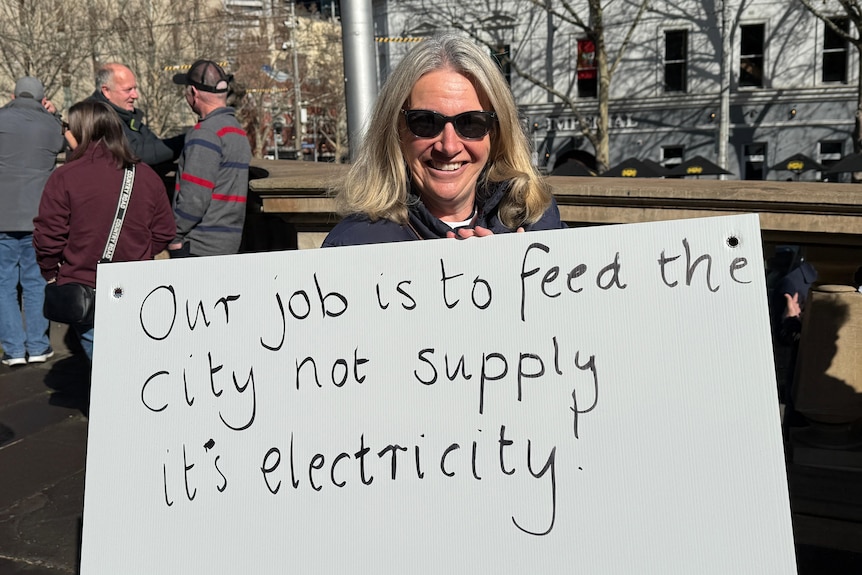 IMPERIAL
Our job is to feed the
city not supply
it's electricity!